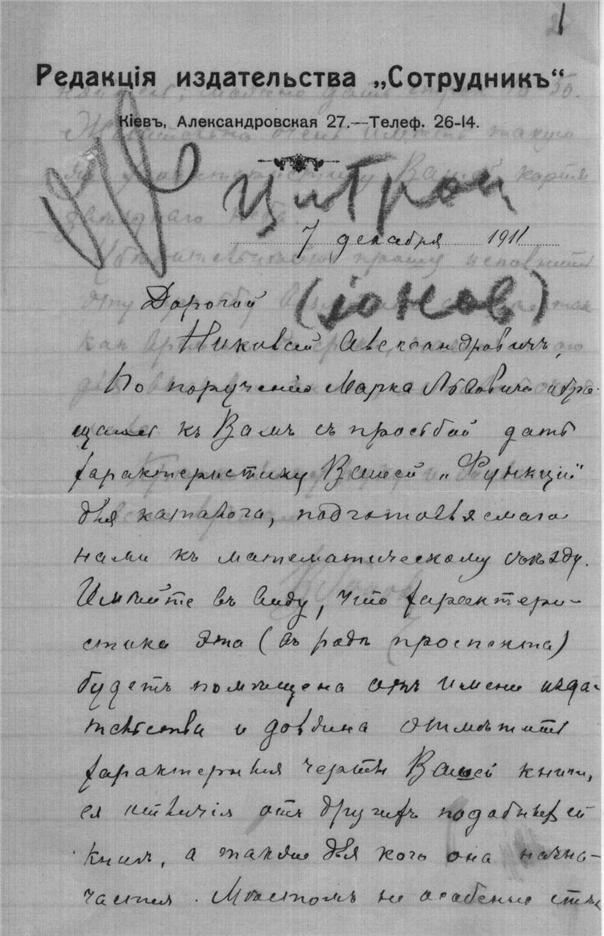 1
Редакція издательства „Сотрудникъ“
Кіевъ, Александровская 27.—Телеф. 26-14.
Цитрон
7 декабря 1911
(іонов)
Дорогой
Николай Александровичъ,
По порученію Марка Львовича обра-
щаюсь къ Вамъ съ просьбой дать
характеристику Вашей „Функціи“
для каталога, подготовляемаго
нами къ математическому съѣзду.
Имѣйте въ виду, что характери-
стика эта (въ родѣ проспекта)
будетъ помѣщена отъ имени изда-
тельства и должна отмѣтить
характерныя черты Вашей книги,
ея отличія отъ другихъ подобныхъ ей
книгъ, а также для кого она назна-
чается. Мѣстомъ не особенно